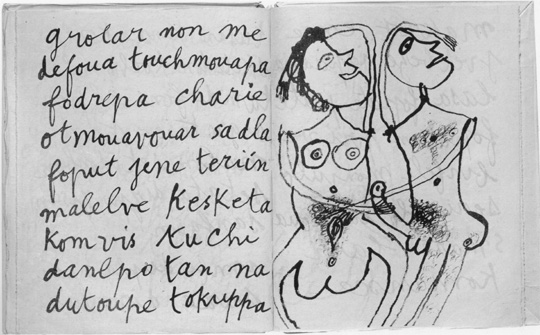 grolar non me
defoua touchmouapa
fodrepa charie
otmouavouar sadla
foput jene teriin
malelve Kesketa
Komvis tuchi
danlpo tan na
dutoupe tokuppa